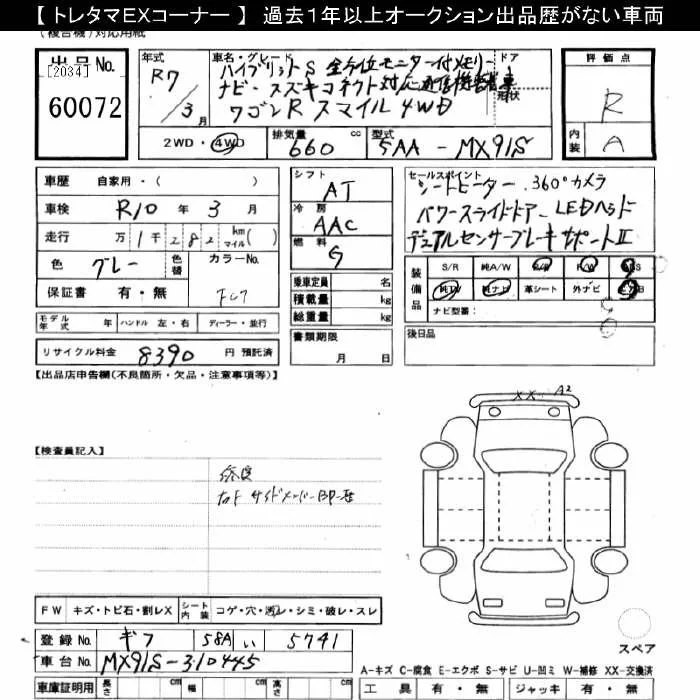 【 トレタマEXコーナー 】 過去1年以上オークション出品歴がない車両
(複合機)対応用紙
出品No.
[2034]
60072
年式
R7
/3月
車名・グレード
ハイブリットS 全方位モニター付メモリー
ナビ スズキコネクト対応通信機装着車
ワゴンR スマイル 4WD
ドア
形状
2WD・4WD
排気量
660 cc
型式
5AA-MX91S
評価点
R
内装
A
車歴 自家用・( )
車検 R10 年 3 月
走行 万 1 千 282 km マイル ( )
色 グレー 色替 カラーNo.
保証書 有・無
モデル年式 年 ハンドル 左・右 ディーラー・並行
リサイクル料金 8390 円 預託済
シフト
AT
冷房
AAC
燃料
G
乗車定員 名
積載量 kg
総重量 kg
書類期限
月 日
セールスポイント
シートヒーター .360°カメラ
パワースライドドアー LEDヘッド
デュアルセンサーブレーキサポートII
装備品
S/R 純A/W P/S P/W ABS
純TV 純ナビ 革シート 外ナビ エアB
ナビ型番:
後日品
【出品店申告欄(不良箇所・欠品・注意事項等)】
XX A2
【検査員記入】
修復
FW キズ・トビ石・割レX シート内装 コゲ・穴・汚レ・シミ・破レ・スレ
スペア
登録No. ギフ 58A い 5741
車台No. MX91S-310445
車庫証明用 長さ cm 幅 cm 高さ cm
A-キズ C-腐食 E-エクボ S-サビ U-凹ミ W-補修 XX-交換済
工具 有・無 ジャッキ 有・無